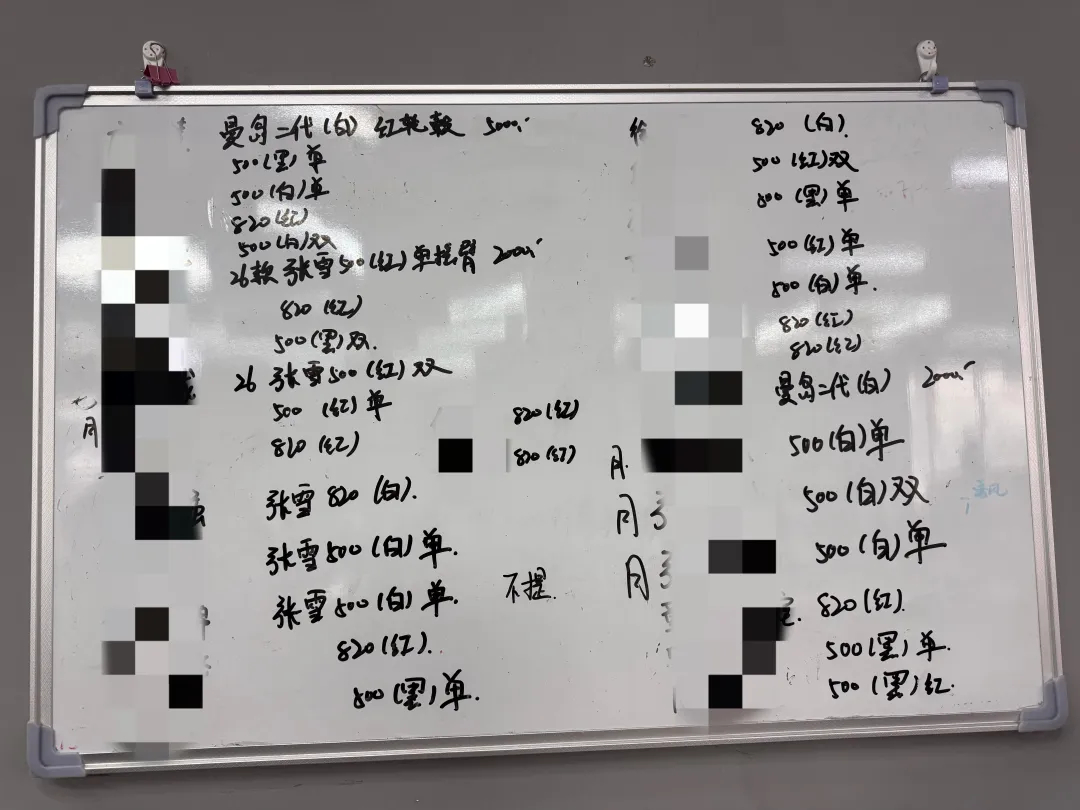 曼岛二代(白) 红轮毂 5000
500(黑)单
500(白)单
820(红)
500(白)双
26款 张雪500(红)单摇臂 2000
820(红)
500(黑)双.
26 张雪500(红)双
500 (红)单
820(红)
820(红)
820(红)
七月
张雪 820 (白).
张雪500(白)单.
张雪500(白)单. 不提.
820(红).
500(黑)单.
月.
月
月
820 (白).
500 (红)双
500 (黑)单
500(红)单
500(白)单.
820(红)
820(红)
曼岛二代(白) 2000
500(白)单
500(白)双
500(白)单
820(红).
500(黑)单.
500(黑)红.